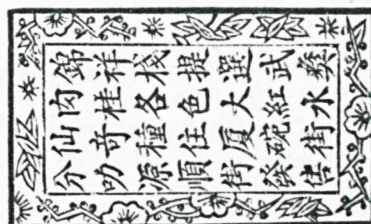 錦祥棧提選武彝
肉桂各色大紅水
仙奇種住廈碗街
分叻源順街發售